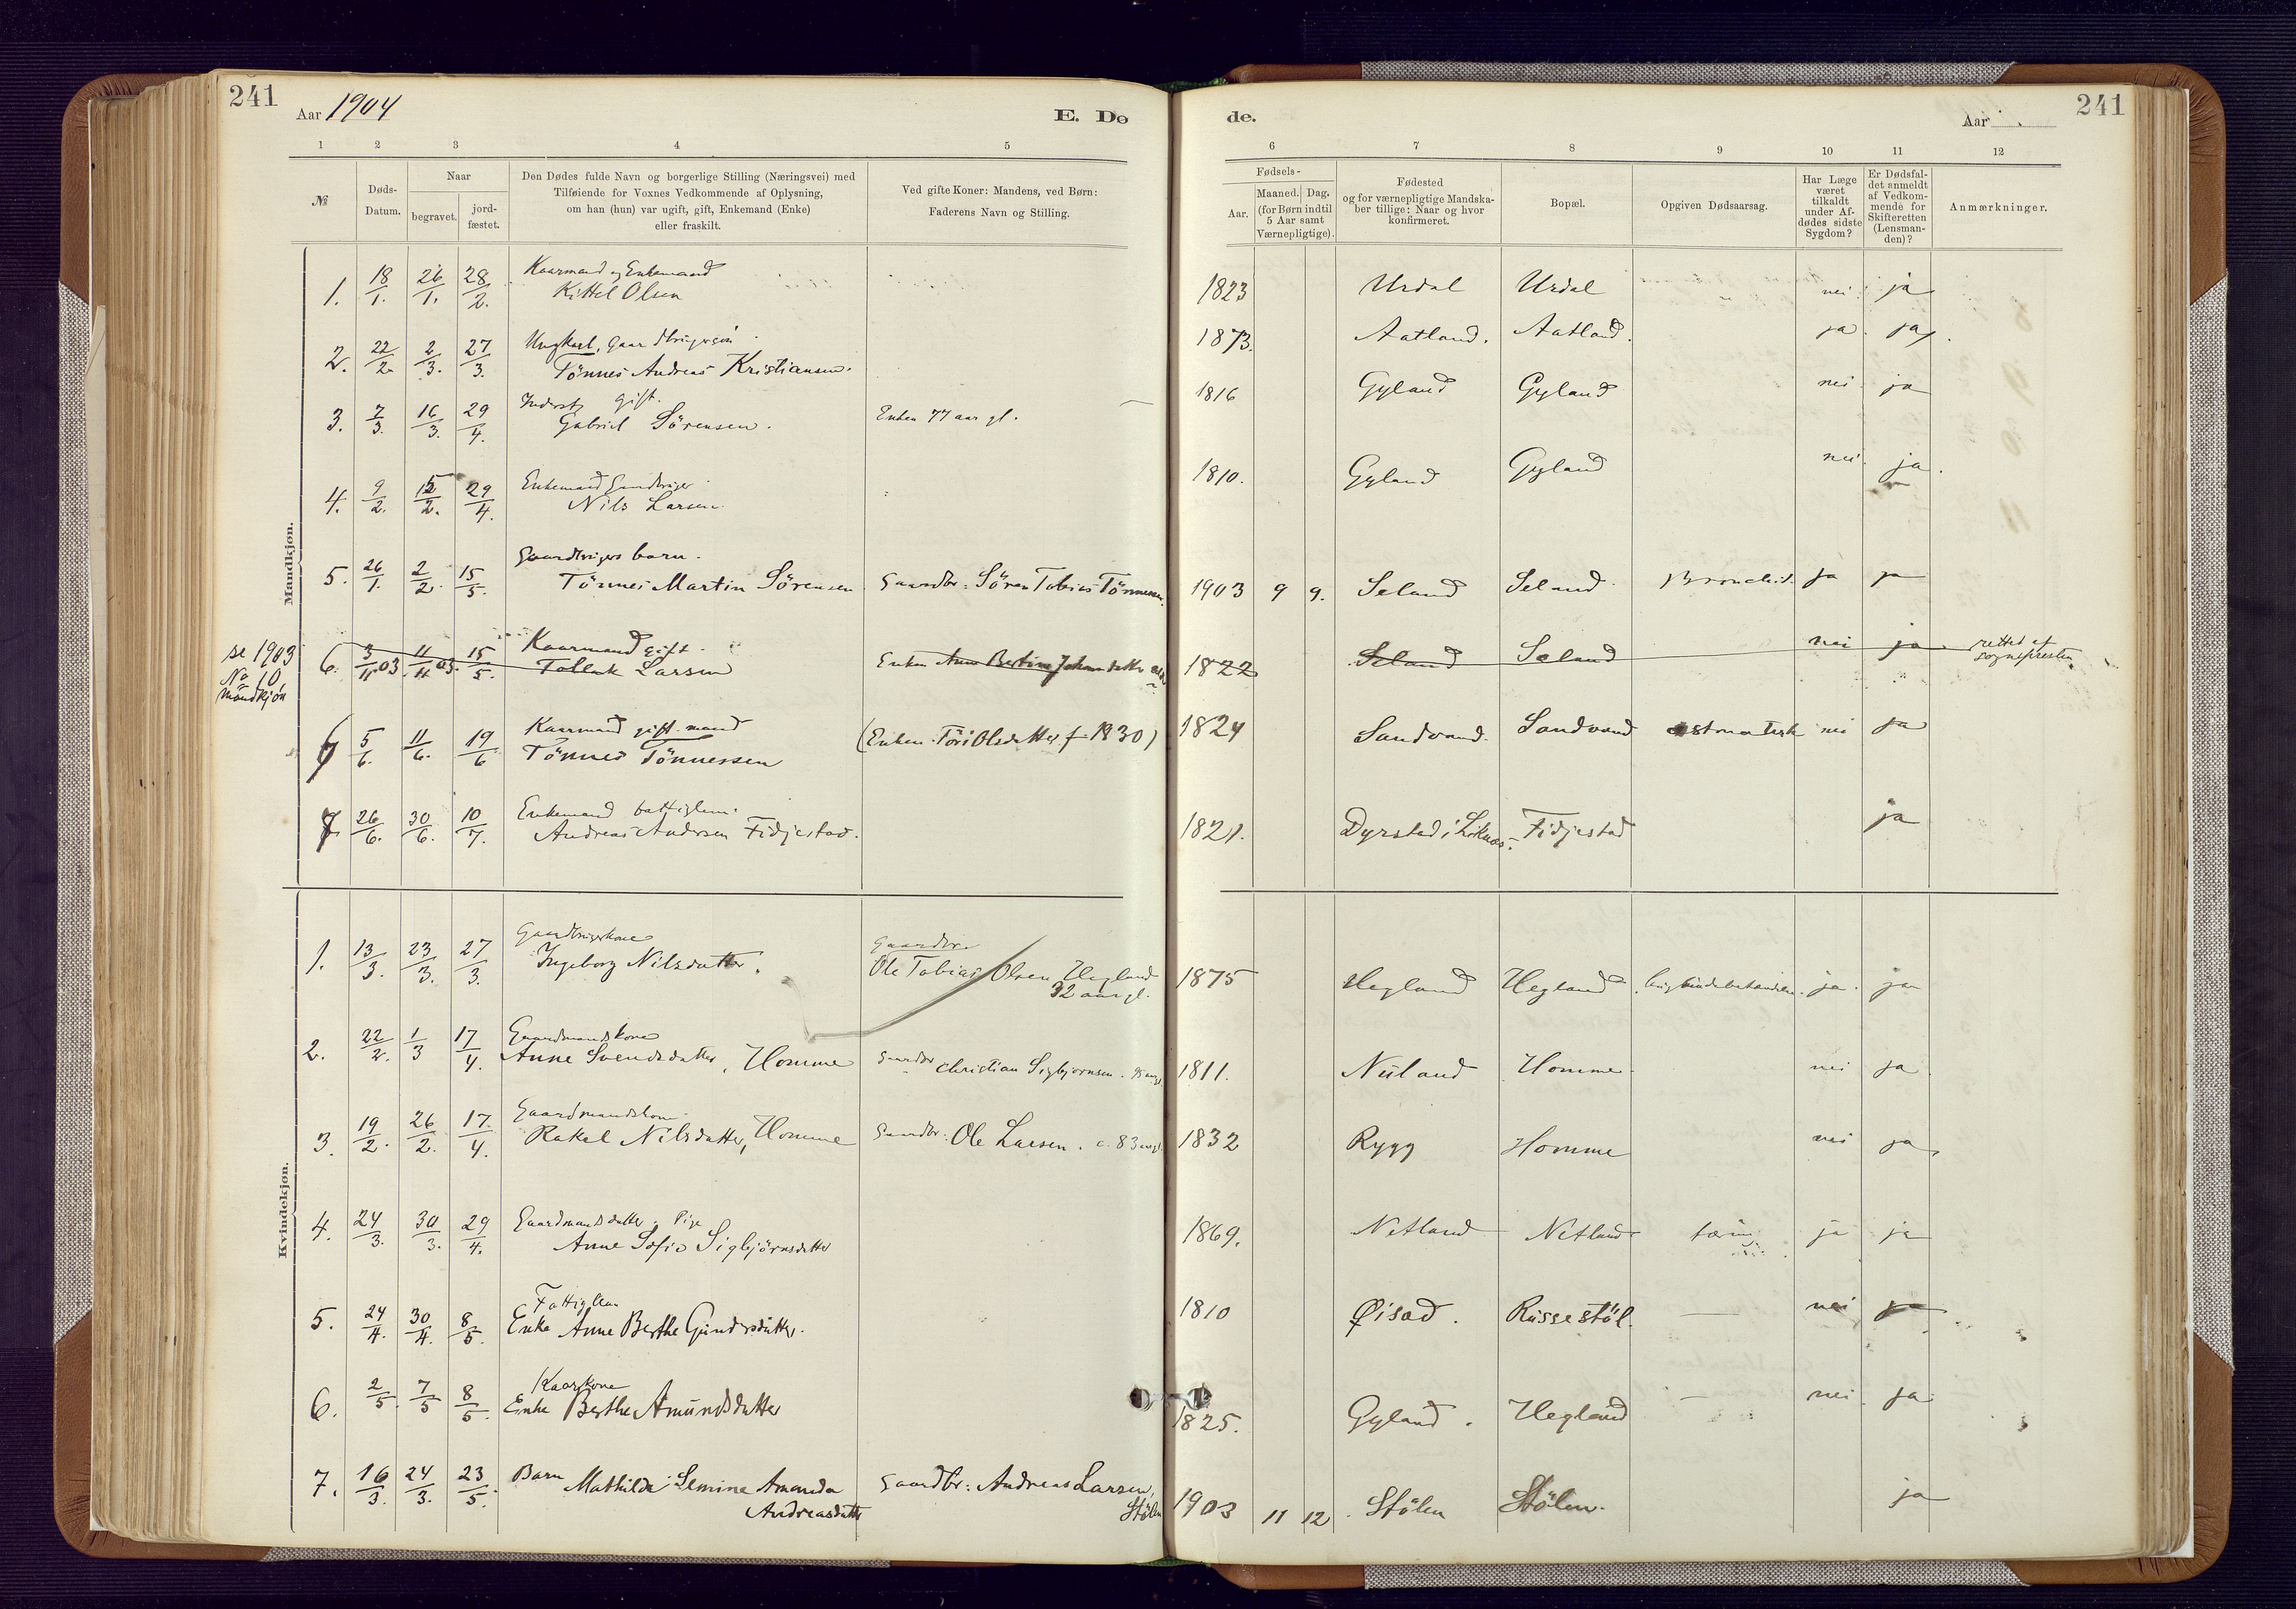 241
Aar 1904
E. Dø
de.
Aar
241
1 2 3 4 5 6 7 8 9 10 11 12
№
Døds-
Datum.
Naar
begravet.
jord-
fæstet.
Den Dødes fulde Navn og borgerlige Stilling (Næringsvei) med
Tilføiende for Voxnes Vedkommende af Oplysning,
om han (hun) var ugift, gift, Enkemand (Enke)
eller fraskilt.
Ved gifte Koner: Mandens, ved Børn:
Faderens Navn og Stilling.
Fødsels-
Aar.
Maaned. Dag.
(for Børn indtil
5 Aar samt
Værnepligtige).
Fødested
og for værnepligtige Mandska-
ber tillige: Naar og hvor
konfirmeret.
Bopæl.
Opgiven Dødsaarsag.
Har Læge
været
tilkaldt
under Af-
dødes sidste
Sygdom?
Er Dødsfal-
det anmeldt
af Vedkom-
mende for
Skifteretten
(Lensman-
den)?
Anmærkninger.
Mandkjøn.
Kaarmand og Enkemand
1. 18/1. 26/1. 28/2. Kittel Olsen 1823 Urdal Urdal nei ja
Ungkarl, Gaardbrugersøn
2. 22/2. 2/3. 27/3. Tönnes Andreas Kristiansen. 1873. Aatland. Aatland. ja ja
Inderst, gift.
3. 7/3. 16/3. 29/4. Gabriel Sörensen. Enken 77 aar gl. 1816 Gyland Gyland nei ja
Enkemand Gaardbruger
4. 9/2. 15/2. 29/4. Nils Larsen 1810. Gyland Gyland nei ja.
Gaardbrugers barn.
5. 26/1. 2/2. 15/5. Tönnes Martin Sörensen Gaardbr: Sören Tobias Tönnessen. 1903 9 9. Seland Seland Bronchit. ja ja
se 1903
No 10,
mandkjøn
Kaarmand gift.
6. 3/11 03 11/11 03. 15/5. Tollak Larsen Enken Anne Bertine Johnsdatter 1822 Seland Seland nei ja rettet af
sognepresten
Kaarmand gift mand
6 5/6. 11/6. 19/6 Tönnes Tönnessen (Enken Töri Olsdatter f. 1830) 1824 Sandvand. Sandvand astmatisk nei ja
Enkemand fattiglem.
7 26/6. 30/6. 10/7. Andreas Andersen Fidjestad. 1821. Dyrstad i Liknes. Fidjestad ja
Kvindekjøn.
Gaardbrugerkone
1. 13/3. 23/3. 27/3. Ingeborg Nilsdatter. Gaardbr.
Ole Tobias Olsen Hegland
32 aar gl. 1875 Hegland Hegland ja. ja
Gaardmandskone
2. 22/2. 1/3 17/4. Anne Svendsdatter, Homme Gaardbr Christian Sigbjørnsen. 1811. Nuland Homme nei ja
Gaardmandskone
3. 19/2. 26/2. 17/4. Rakel Nilsdatter, Homme Gaardbr: Ole Larsen. c. 83 aar gl. 1832 Rygg Homme nei ja
Gaardmandsdatter, Pige
4. 24/3. 30/3. 29/4. Anne Sofie Sigbjörnsdatter 1869. Netland Netland tæring ja ja
Fattiglem
5. 24/4. 30/4. 8/5. Enke Anne Berthe Gundersdatter. 1810 Øisad. Russestöl. — nei ja
Kaarkone
6. 2/5. 7/5 8/5. Enke Berthe Amundsdatter 1825. Gyland. Hegland — nei ja
7. 16/3. 24/3. 23/5. Barn Mathilde Semine Amanda
Andreasdatter Gaardbr: Andreas Larsen,
Stölen 1903 11 12 Stölen Stölen. ja